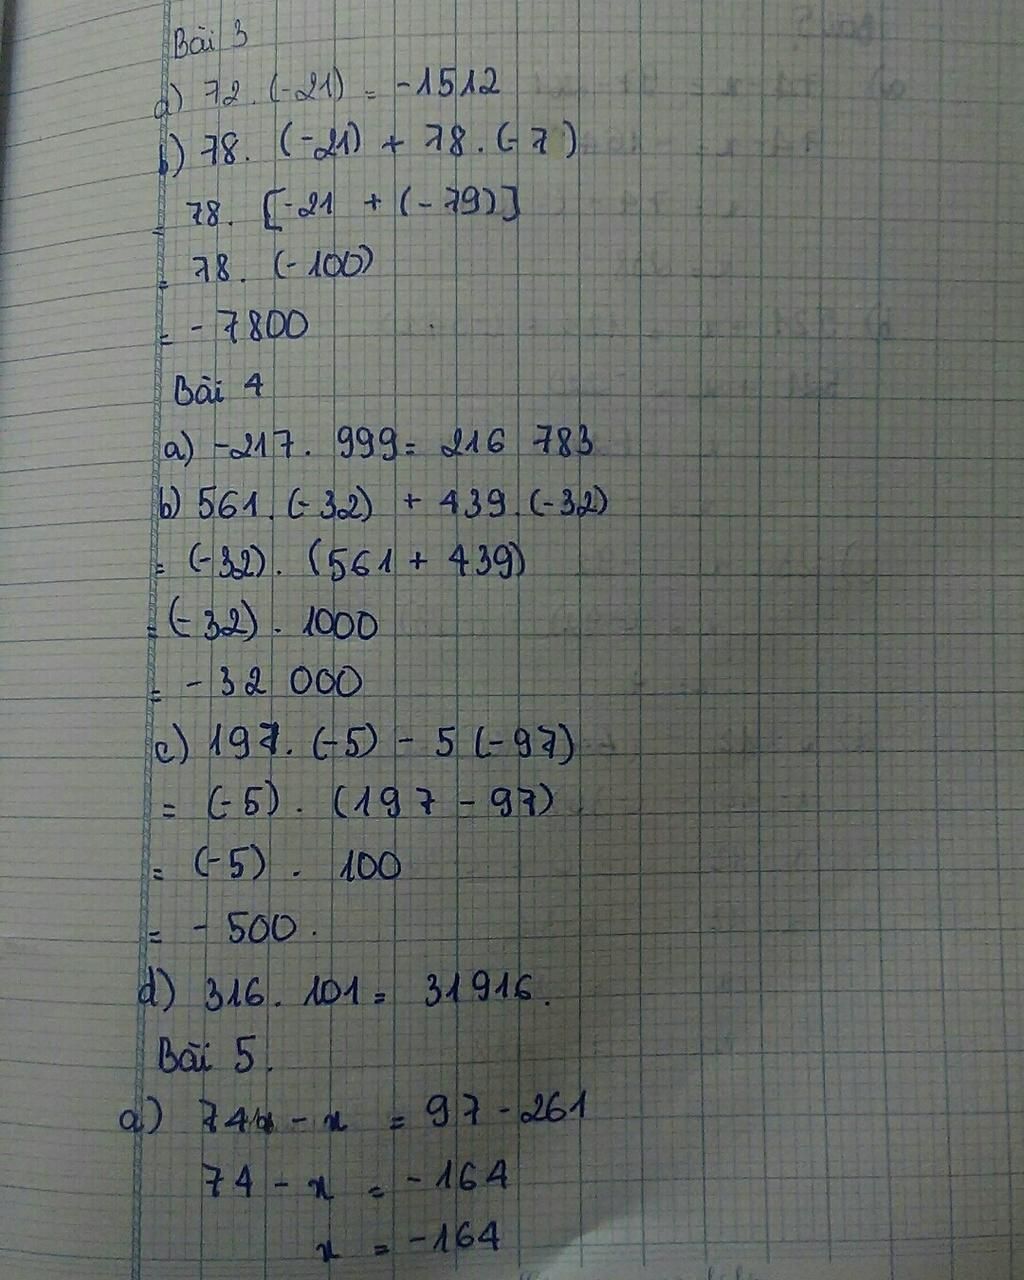 Bài 3
a) 72. (-21) = -1512
b) 78. (-21) + 78. (-7 )
= 78. [-21 + (-79)]
= 78. (-100)
= -7800
Bài 4
a) -217. 999= 216 783
b) 561. (-32) + 439. (-32)
= (-32). (561 + 439)
= (-32). 1000
= -32 000
c) 197. (-5) - 5 (-97)
= (-5). (197 - 97)
= (-5). 100
= -500.
d) 316. 101= 31916.
Bài 5.
a) 74 - x = 97 - 261
74 - x = -164
x = -164